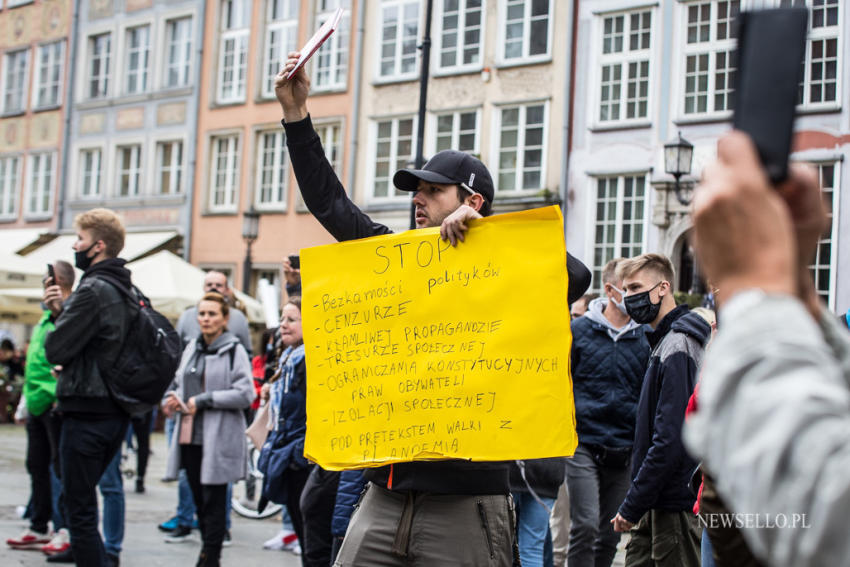 STOP
- Bezkarności polityków
- CENZURZE
- KŁAMLIWEJ PROPAGANDZIE
- TRESURZE SPOŁECZNEJ
- OGRANICZANIA KONSTYTUCYJNYCH
PRAW OBYWATELI
- IZOLACJI SPOŁECZNEJ
POD PRETEKSTEM WALKI Z
PLANDEMIĄ
NEWSELLO.PL